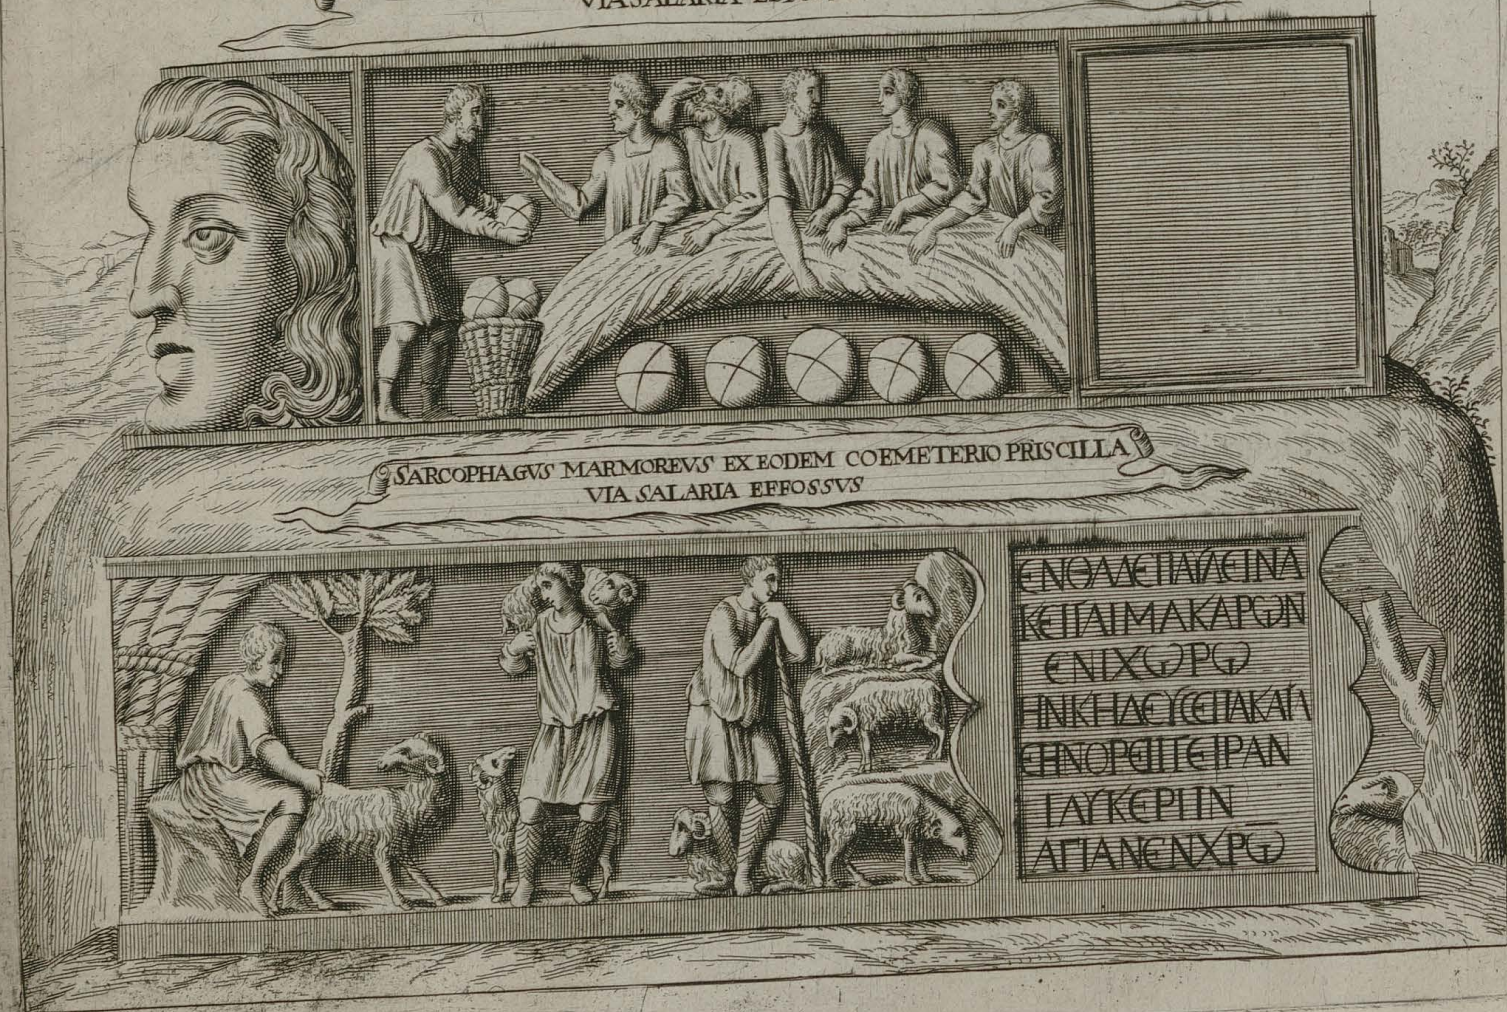 VIA SALARIA
SARCOPHAGVS MARMOREVS EX EODEM COEMETERIO PRISCILLA
VIA SALARIA EFFOSSVS
ΕΝΘΑΔΕΠΑΥΛΕΙΝΑ
ΚΕΙΤΑΙΜΑΚΑΡΩΝ
ΕΝΙΧΩΡΩ
ΗΝΚΗΔΕΥϹΕΠΑΚΑΤΑ
ΕΗΝΟΡΕΠΤΕΙΡΑΝ
ΓΛΥΚΕΡΗΝ
ΑΓΙΑΝΕΝΧΡΩ